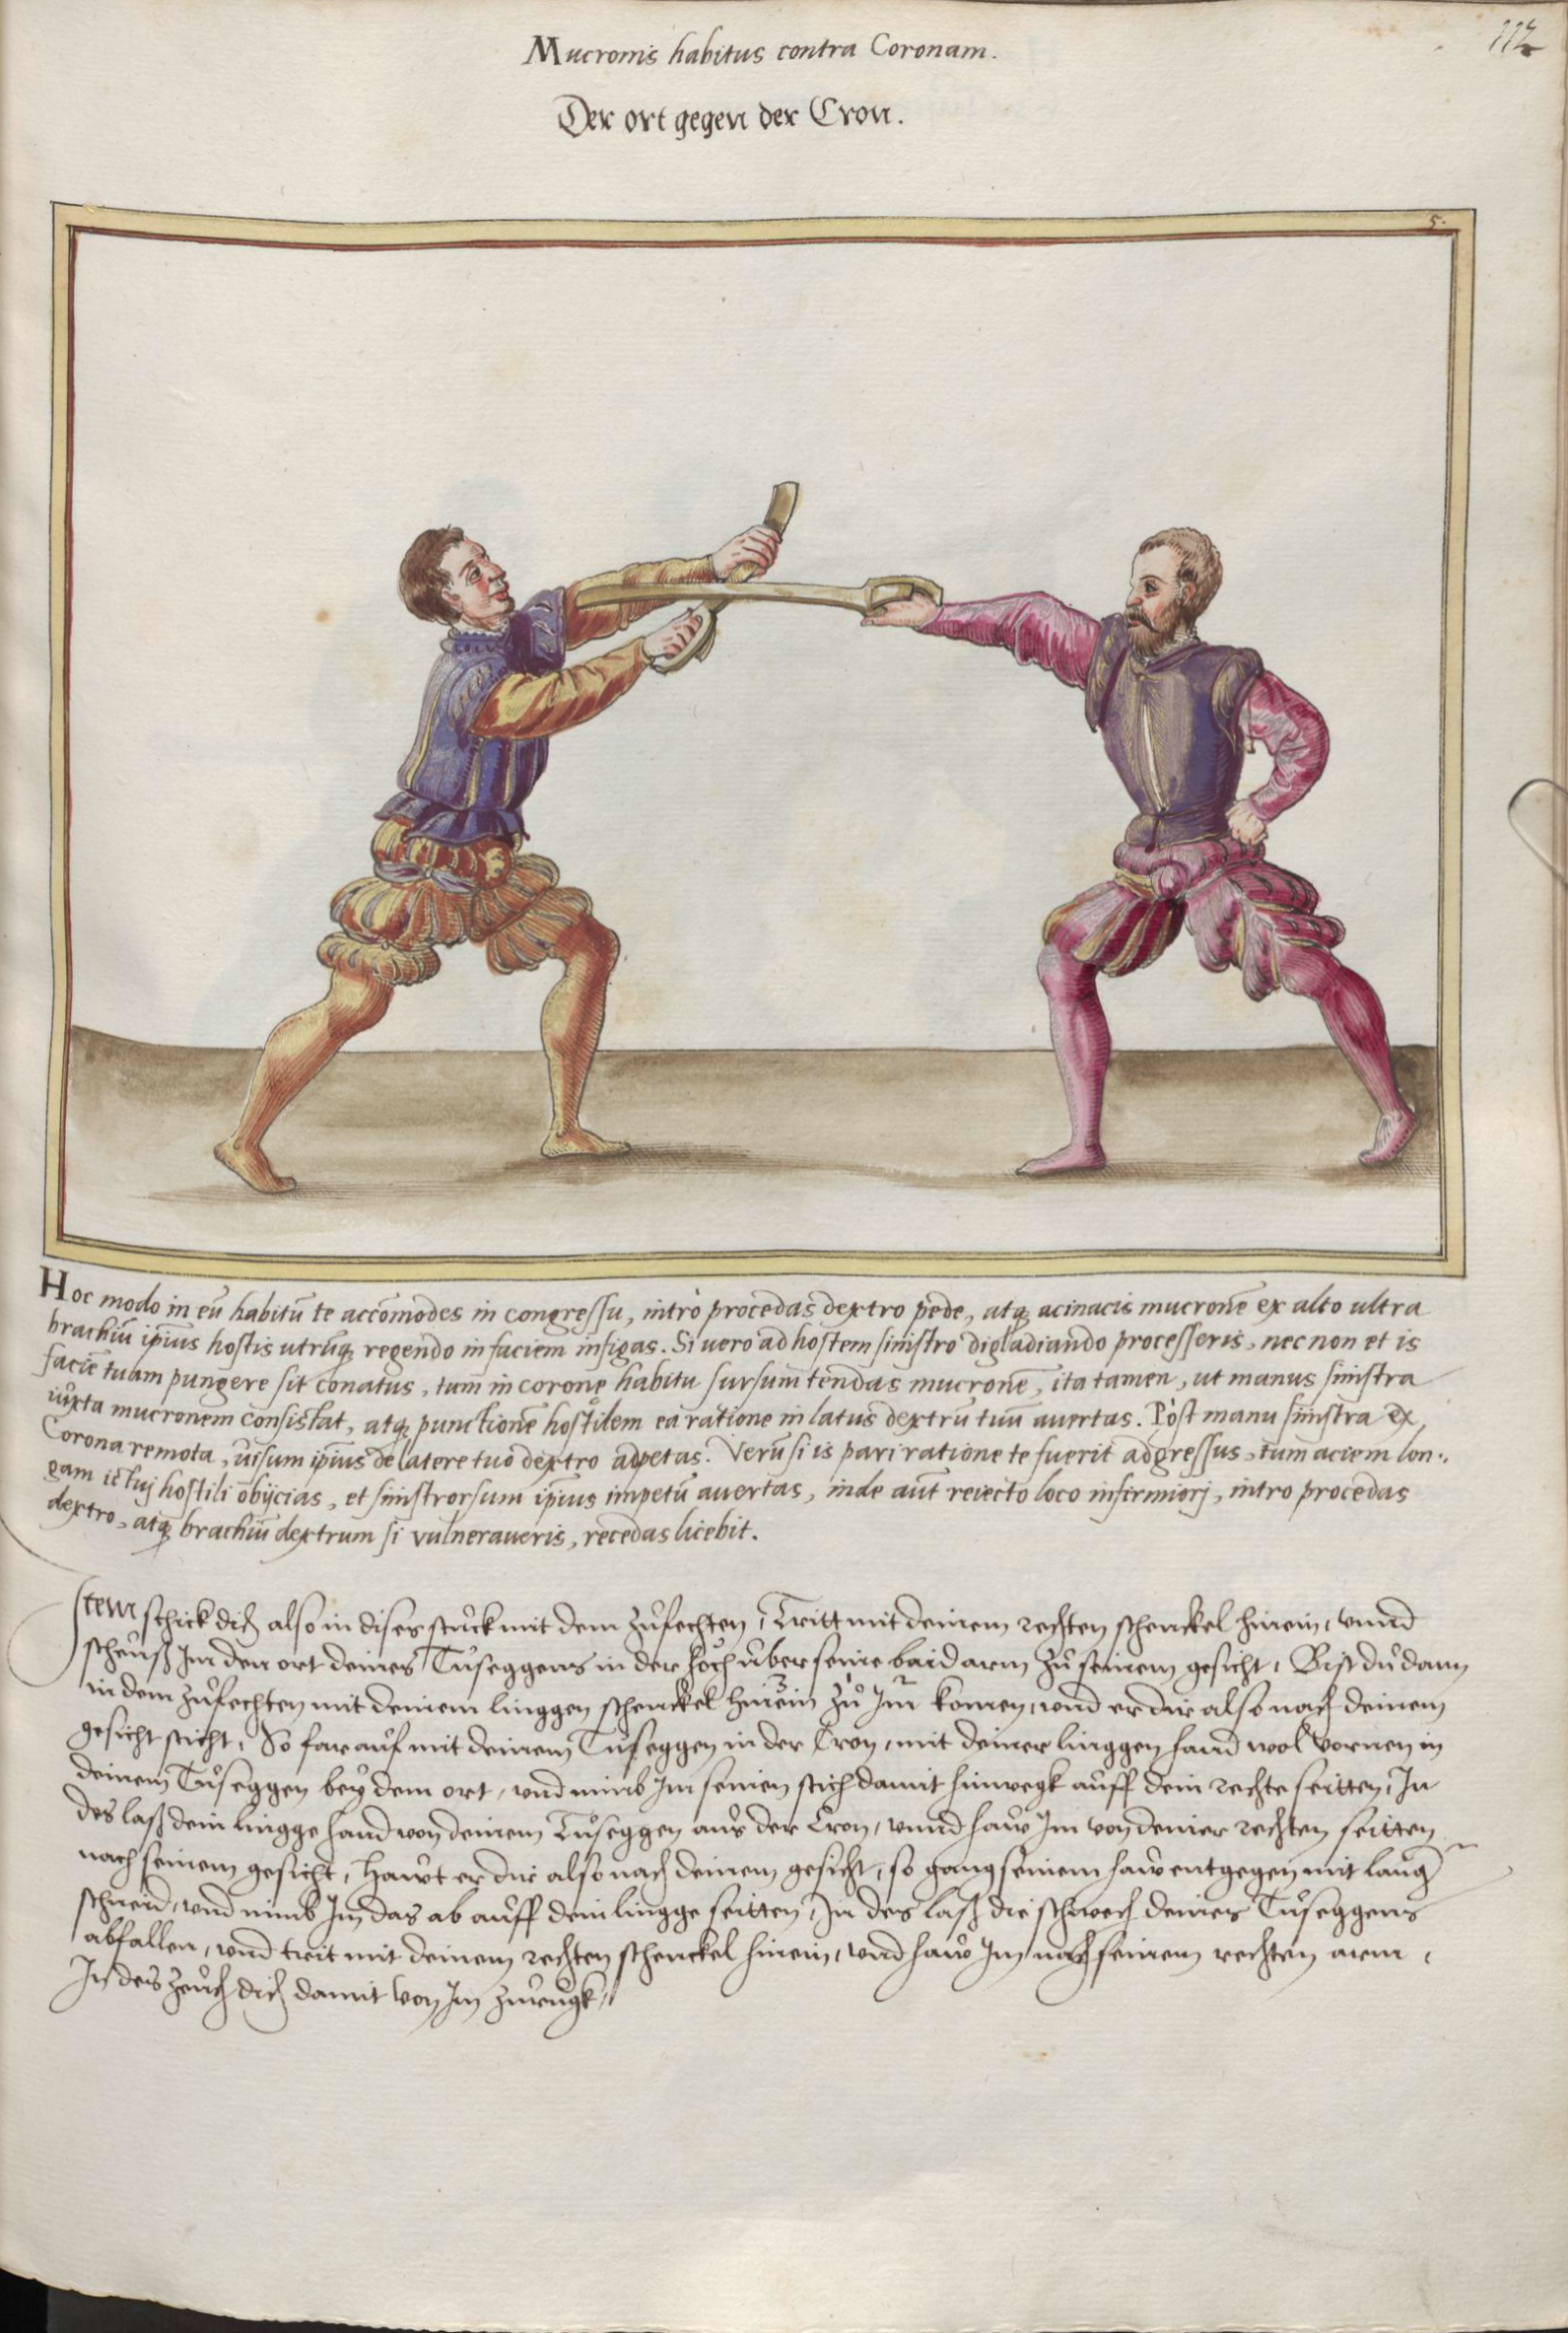 112
Mucronis habitus contra Coronam.
Der ort gegen der Cron.
5.
Hoc modo in eū habitū te accōmodes in congressu, intrò procedas dextro pede, atq acinacis mucronē ex alto ultra
brachiū ipius hostis utrūq regendo in faciem infigas. Si uero ad hostem sinistro digladiando processeris, nec non et is
faciē tuam pungere sit conatus, tum in coronę habitu sursum tendas mucronē, ita tamen, ut manus sinistra
iuxta mucronem consistat, atq punctionē hostilem ea ratione in latus dextrū tuū auertas. Pòst manu sinistra ex
Corona remota, uisum ipius de latere tuo dextro adpetas. Verū si is pari ratione te fuerit adgressus, tum aciem lon:,
gam ictuj hostili obijcias, et sinistrorsum ipius impetū auertas, inde aūt reiecto loco infirmiorj, intro procedas
dextro, atq brachiū dextrum si vulneraueris, recedas licebit.
Item schick dich also in dises stuck mit dem zůfechten, Tritt mit deinem rechten schenckel hinein, vnnd
scheuß Im den ort deines Tůseggens in der hoch über seine baid arm zů seinem gesicht, Bist du dann
in dem zůfechten mit deinem linggen schenckel hinein zů Im komen, und er dir also nach deinem
gesicht sticht, So far auf mit deinem Tuseggen in der Cron, mit deiner linggen hand wol vornen in
deinem Tůseggen bey dem ort, und nimb Im seinen stich damit hinwegk auff dein rechte seitten, In
des laß dein lingge hand von deinem Tůseggen aus der Cron, vnnd haw Im von deiner rechten seitten
nach seinem gesicht, Hawt er dir also nach deinem gesicht, so gang seinem haw entgegen mit lang
schneid, und nimb Im das ab auff dein lingge seitten, In des laß die schwech deines Tůseggens
abfallen, und trit mit deinem rechten schenckel hinein, und haw Im nach seinem rechten arm,
In des zeuch dich damit von Im zurugk,